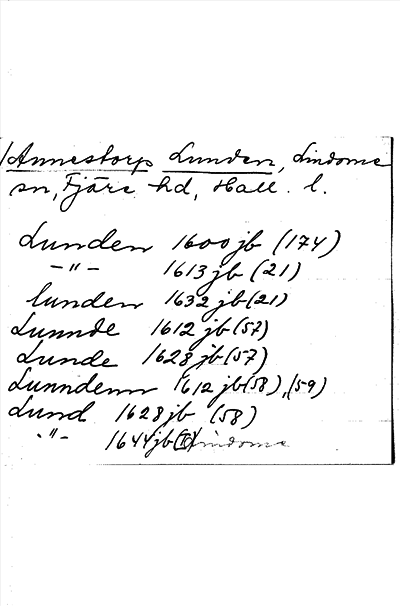 Annestorp Lunden, Lindome
sn, Fjäre hd, Hall. l.
Lunden 1600 jb (174)
-"- 1613 jb (21)
lunden 1632 jb (21)
Lunnde 1612 jb (57)
Lunde 1628 jb (57)
Lunndenn 1612 jb (58), (59)
Lund 1628 jb (58)
-"- 1644 jb (II) Lindome